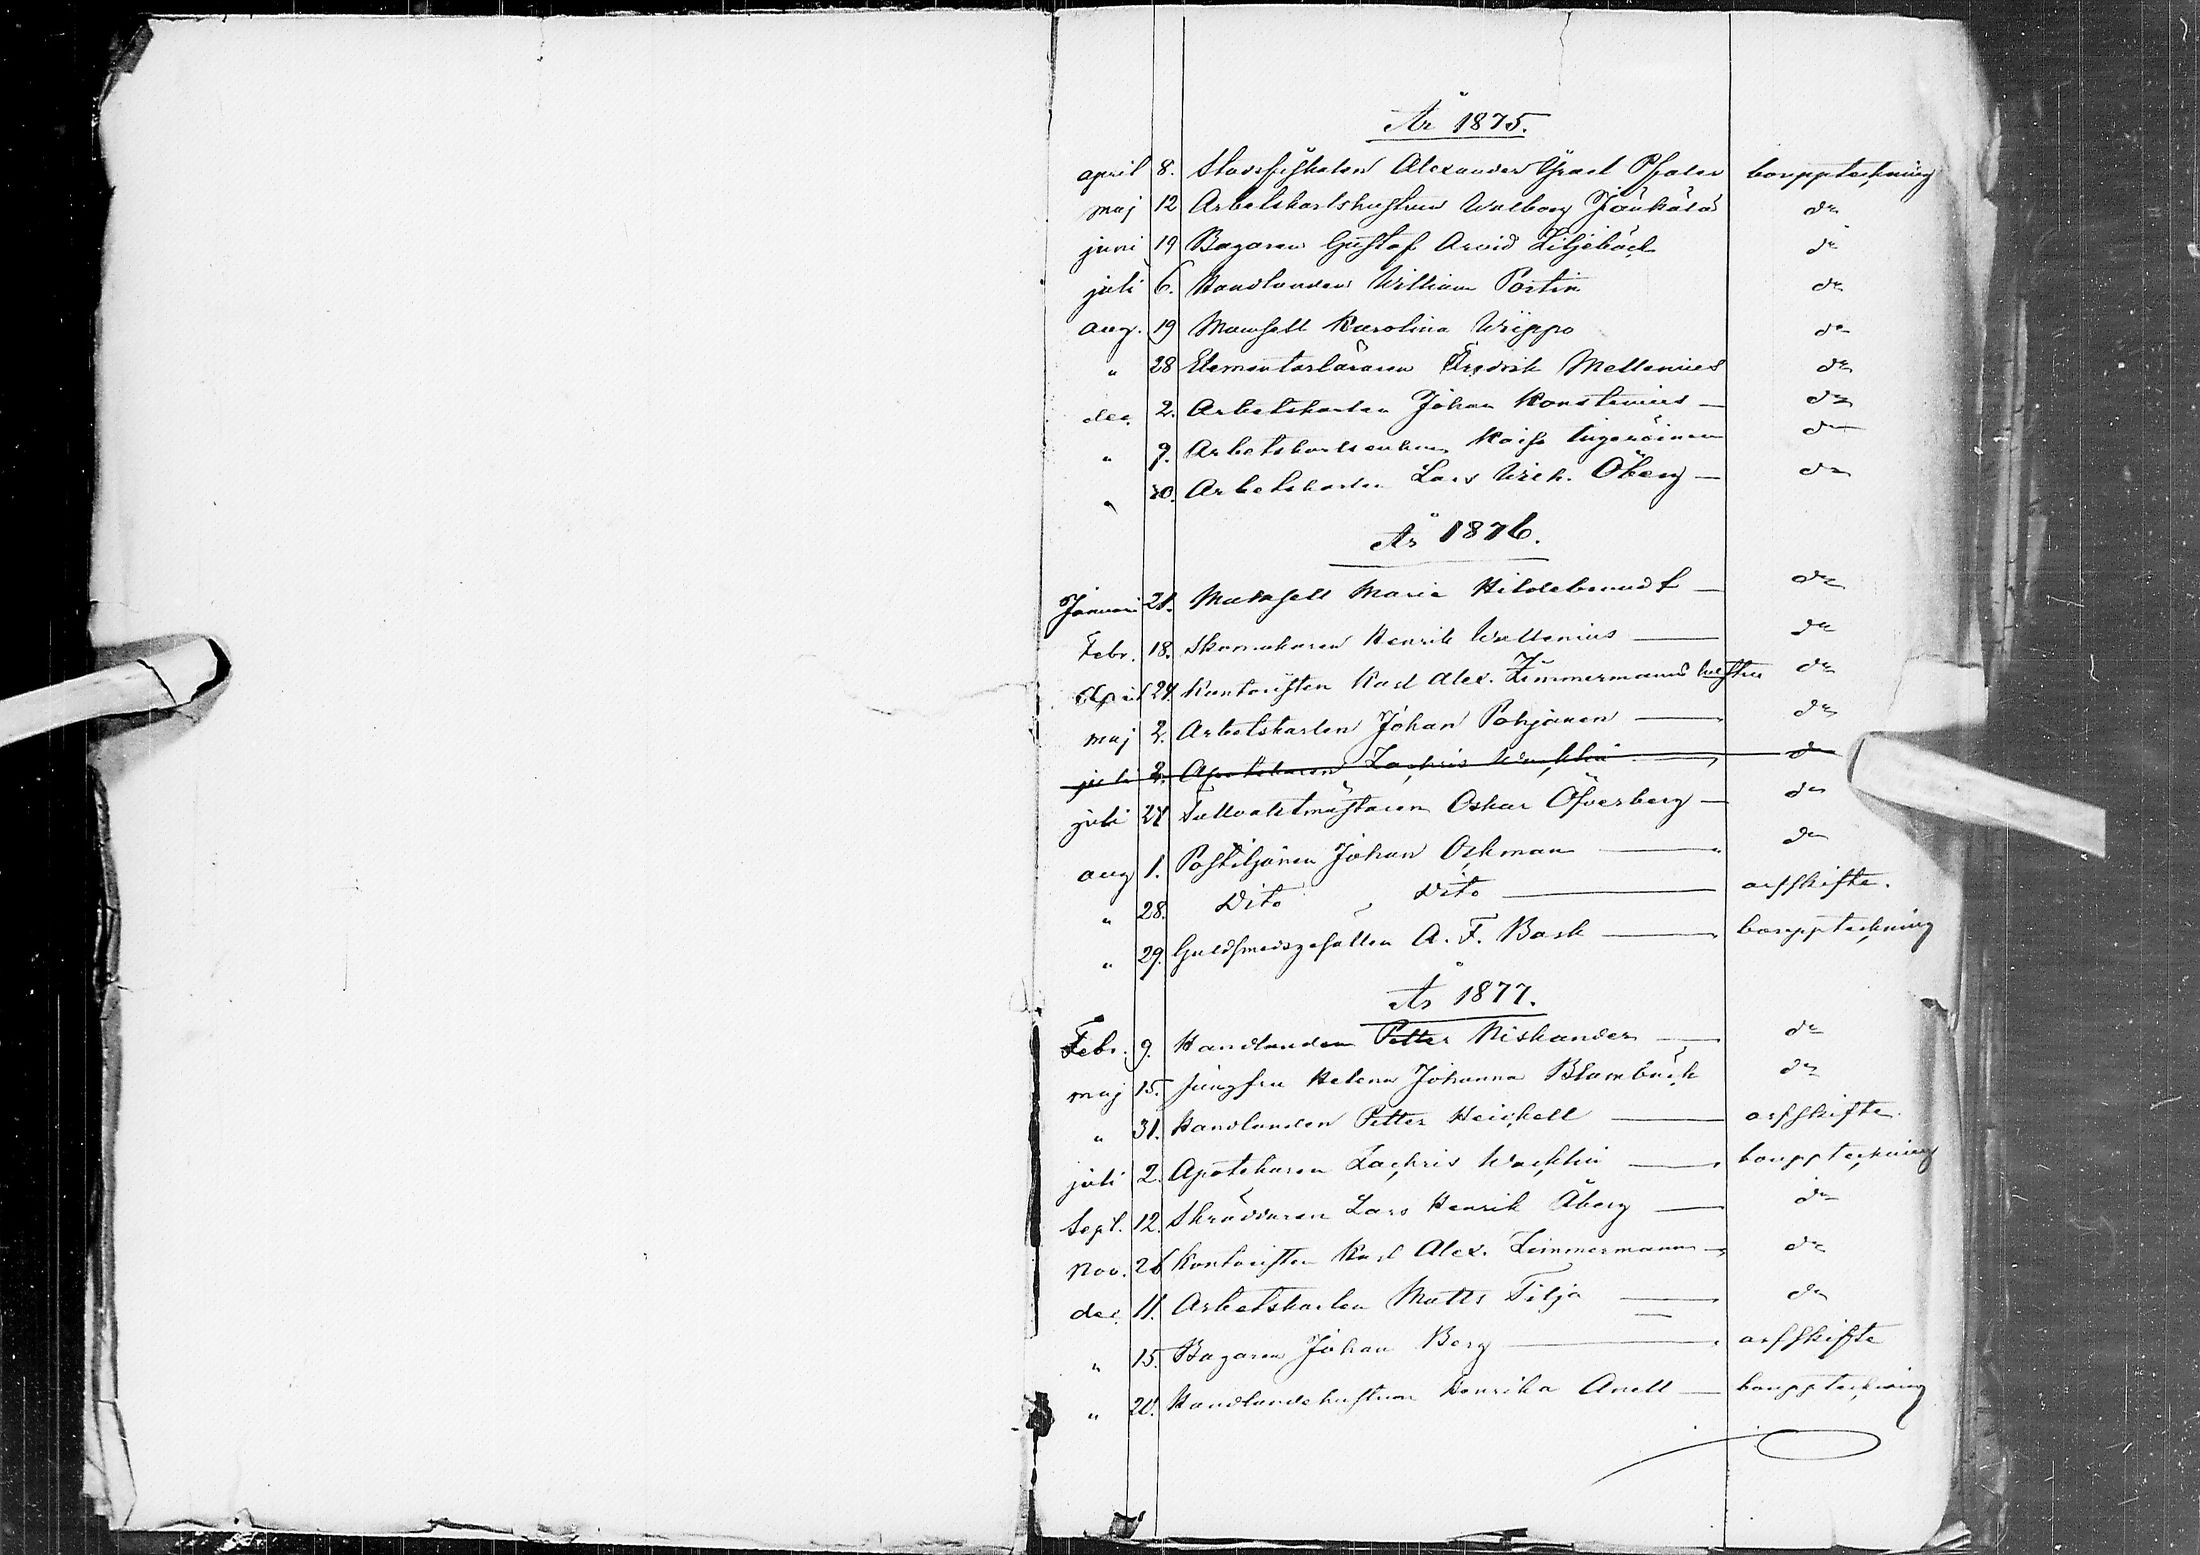 År 1875.
april 8. Stadsfiskalen Alexander Israel Pfaler bouppteckning
maj 12 Arbetskarlshustrun Walborg Jänkälä do
juni 19 Bagaren Gustaf Arvid Liljebäck do
juli 6. Handlanden William Portin do
aug. 19 Mamsell Karolina Wippo do
" 28 Elementarläraren Fredrik Mellenius do
dec. 2. Arbetskarlen Johan Konstenius — do
" 9. Arbetskarlsenkan Kaisa do
" 20. Arbetskarlen Lars Wilh. Öberg — do
År 1876.
Januari 21. Mamsell Maria Hildebrandt — do
Febr. 18. Skomakaren Henrik Wallenius — do
April 24. Kontoristen Karl Alex. Zimmermanns hustru do
maj 2. Arbetskarlen Johan Pohjanen — do
juli 2. Apotekaren Zachris Wacklin — do
juli 24 Tullvaktmästaren Oskar Öfverberg — do
aug 1. Postiljonen Johan Öhman — do
" 28. Dito Dito — arfskifte.
" 29. Guldsmedsgesällen A. F. Bask — bouppteckning
År 1877.
Febr. 9. Handlanden Petter Niskander — do
maj 15. Jungfru Helena Johanna Blombäck do
" 31. Handlanden Petter Heickell — arfskifte.
juli 2. Apotekaren Zachris Wacklin — bouppteckning
Sept. 12. Skräddaren Lars Henrik Åberg — do
Nov. 26 Kontoristen Karl Alex. Zimmermann — do
dec. 11. Arbetskarlen Matts Tilja — do
" 15. Bagaren Johan Berg — arfskifte
" 20. Handlandehustrun Henrika Anell — bouppteckning